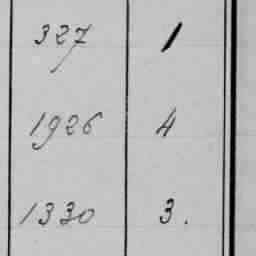 327 1
1926 4
1330 3.